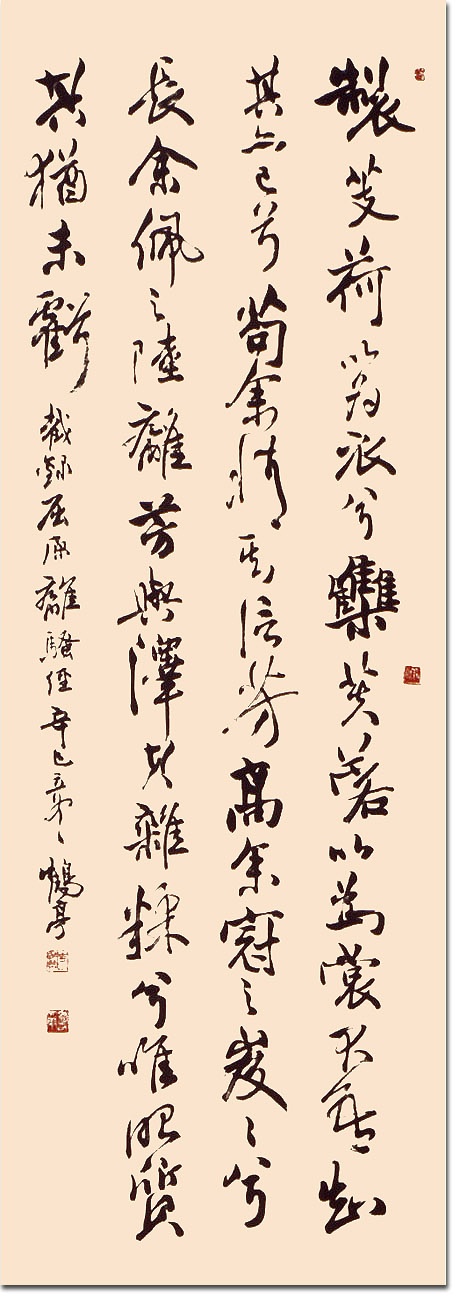 製芰荷以為衣兮雧芙蓉以為裳不吾知
其亦已兮苟余情其信芳高余冠之岌〻兮
長余佩之陸離芳與澤其雜糅兮唯昭質
其猶未虧 截錄屈原離騷經 辛巳 鶴亭